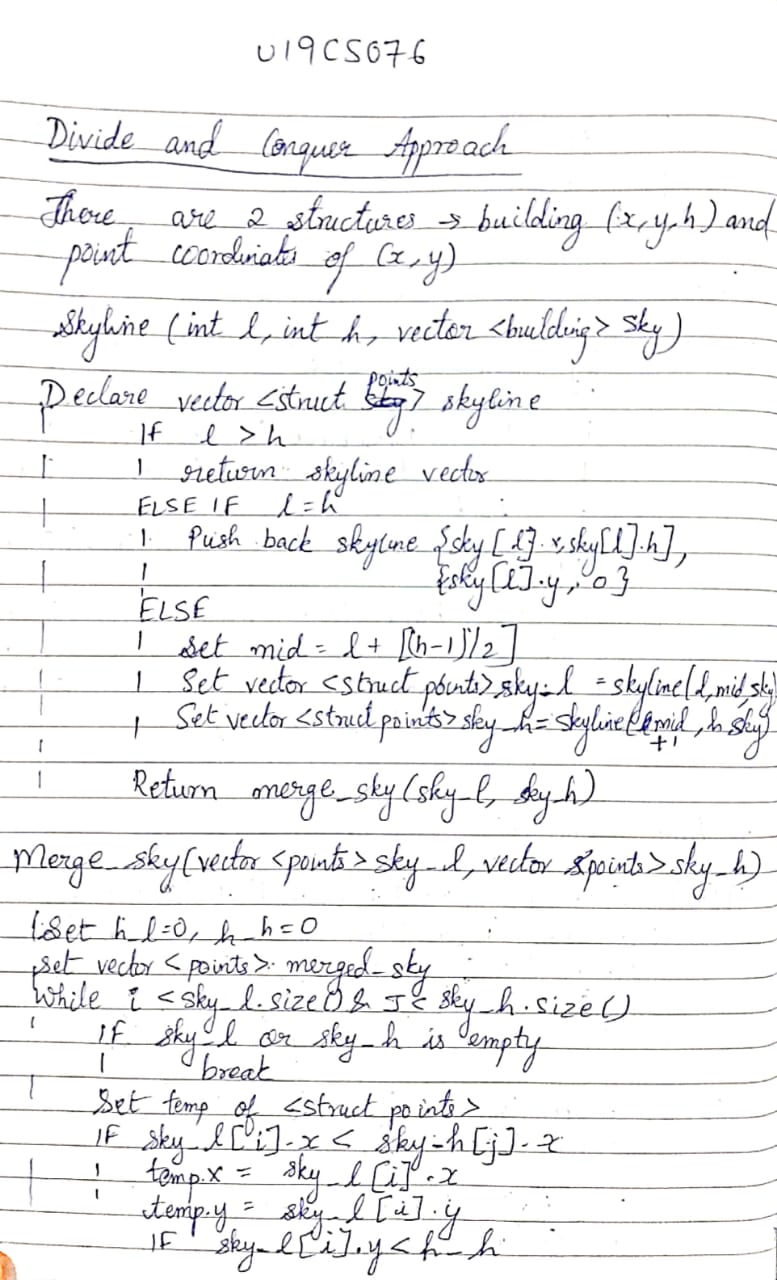 U19CS076
Divide and Conquer Approach
There are 2 structures → building (x, y, h) and
point coordinates of (x, y)
Skyline (int l, int h, vector <building> sky)
Declare vector <struct points> skyline
If l > h
return skyline vector
ELSE IF l = h
Push back skyline {sky[l].x, sky[l].h],
{sky[l].y, 0}
ELSE
set mid = l + [(h-1)/2]
Set vector <struct points> sky-l = skyline(l, mid, sky)
Set vector <struct points> sky_h = skyline(mid+1, h sky)
Return merge_sky(sky_l, sky_h)
Merge_sky(vector <points> sky_l, vector <points> sky_h)
Set h_l=0, h_h=0
set vector <points> merged_sky
While i < sky_l.size() & J < sky_h.size()
IF sky_l or sky_h is empty
break
Set temp of <struct points>
IF sky_l[i].x < sky_h[j].x
temp.x = sky_l[i].x
temp.y = sky_l[i].y
IF sky_l[i].y < h_h